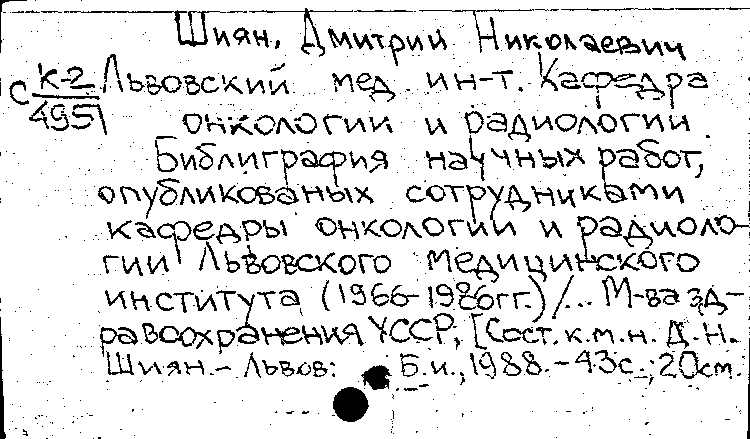 Шиян, Дмитрий Николаевич
С К-2 Львовский мед. ин-т. Кафедра
4951 онкологии и радиологии.
Библиграфия научных работ,
опубликованых сотрудниками
кафедры онкологии и радиоло-
гии Львовского медицинского
института (1966-1986гг.) /... М-ва зд-
равоохранения УССР; [Сост. к.м.н. Д.Н.
Шиян. - Львов: Б.и., 1988. - 43с.; 20см.